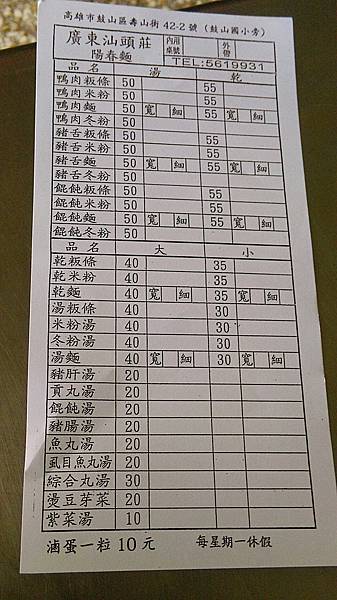 高雄市鼓山區壽山街 42-2 號 (鼓山國小旁)
廣東汕頭莊
陽春麵
內用 桌號
外帶
TEL:5619931
品名 湯 乾
鴨肉粄條 50 55
鴨肉米粉 50 55
鴨肉麵 50 寬 細 55 寬 細
鴨肉冬粉 50
豬舌粄條 50 55
豬舌米粉 50 55
豬舌麵 50 寬 細 55 寬 細
豬舌冬粉 50
餛飩粄條 50 55
餛飩米粉 50 55
餛飩麵 50 寬 細 55 寬 細
餛飩冬粉 50
品名 大 小
乾粄條 40 35
乾米粉 40 35
乾麵 40 寬 細 35 寬 細
湯粄條 40 30
米粉湯 40 30
冬粉湯 40 30
湯麵 40 寬 細 30 寬 細
豬肝湯 20
貢丸湯 20
餛飩湯 20
豬腸湯 20
魚丸湯 20
虱目魚丸湯 20
綜合丸湯 30
燙豆芽菜 20
紫菜湯 10
滷蛋一粒 10 元 每星期一休假